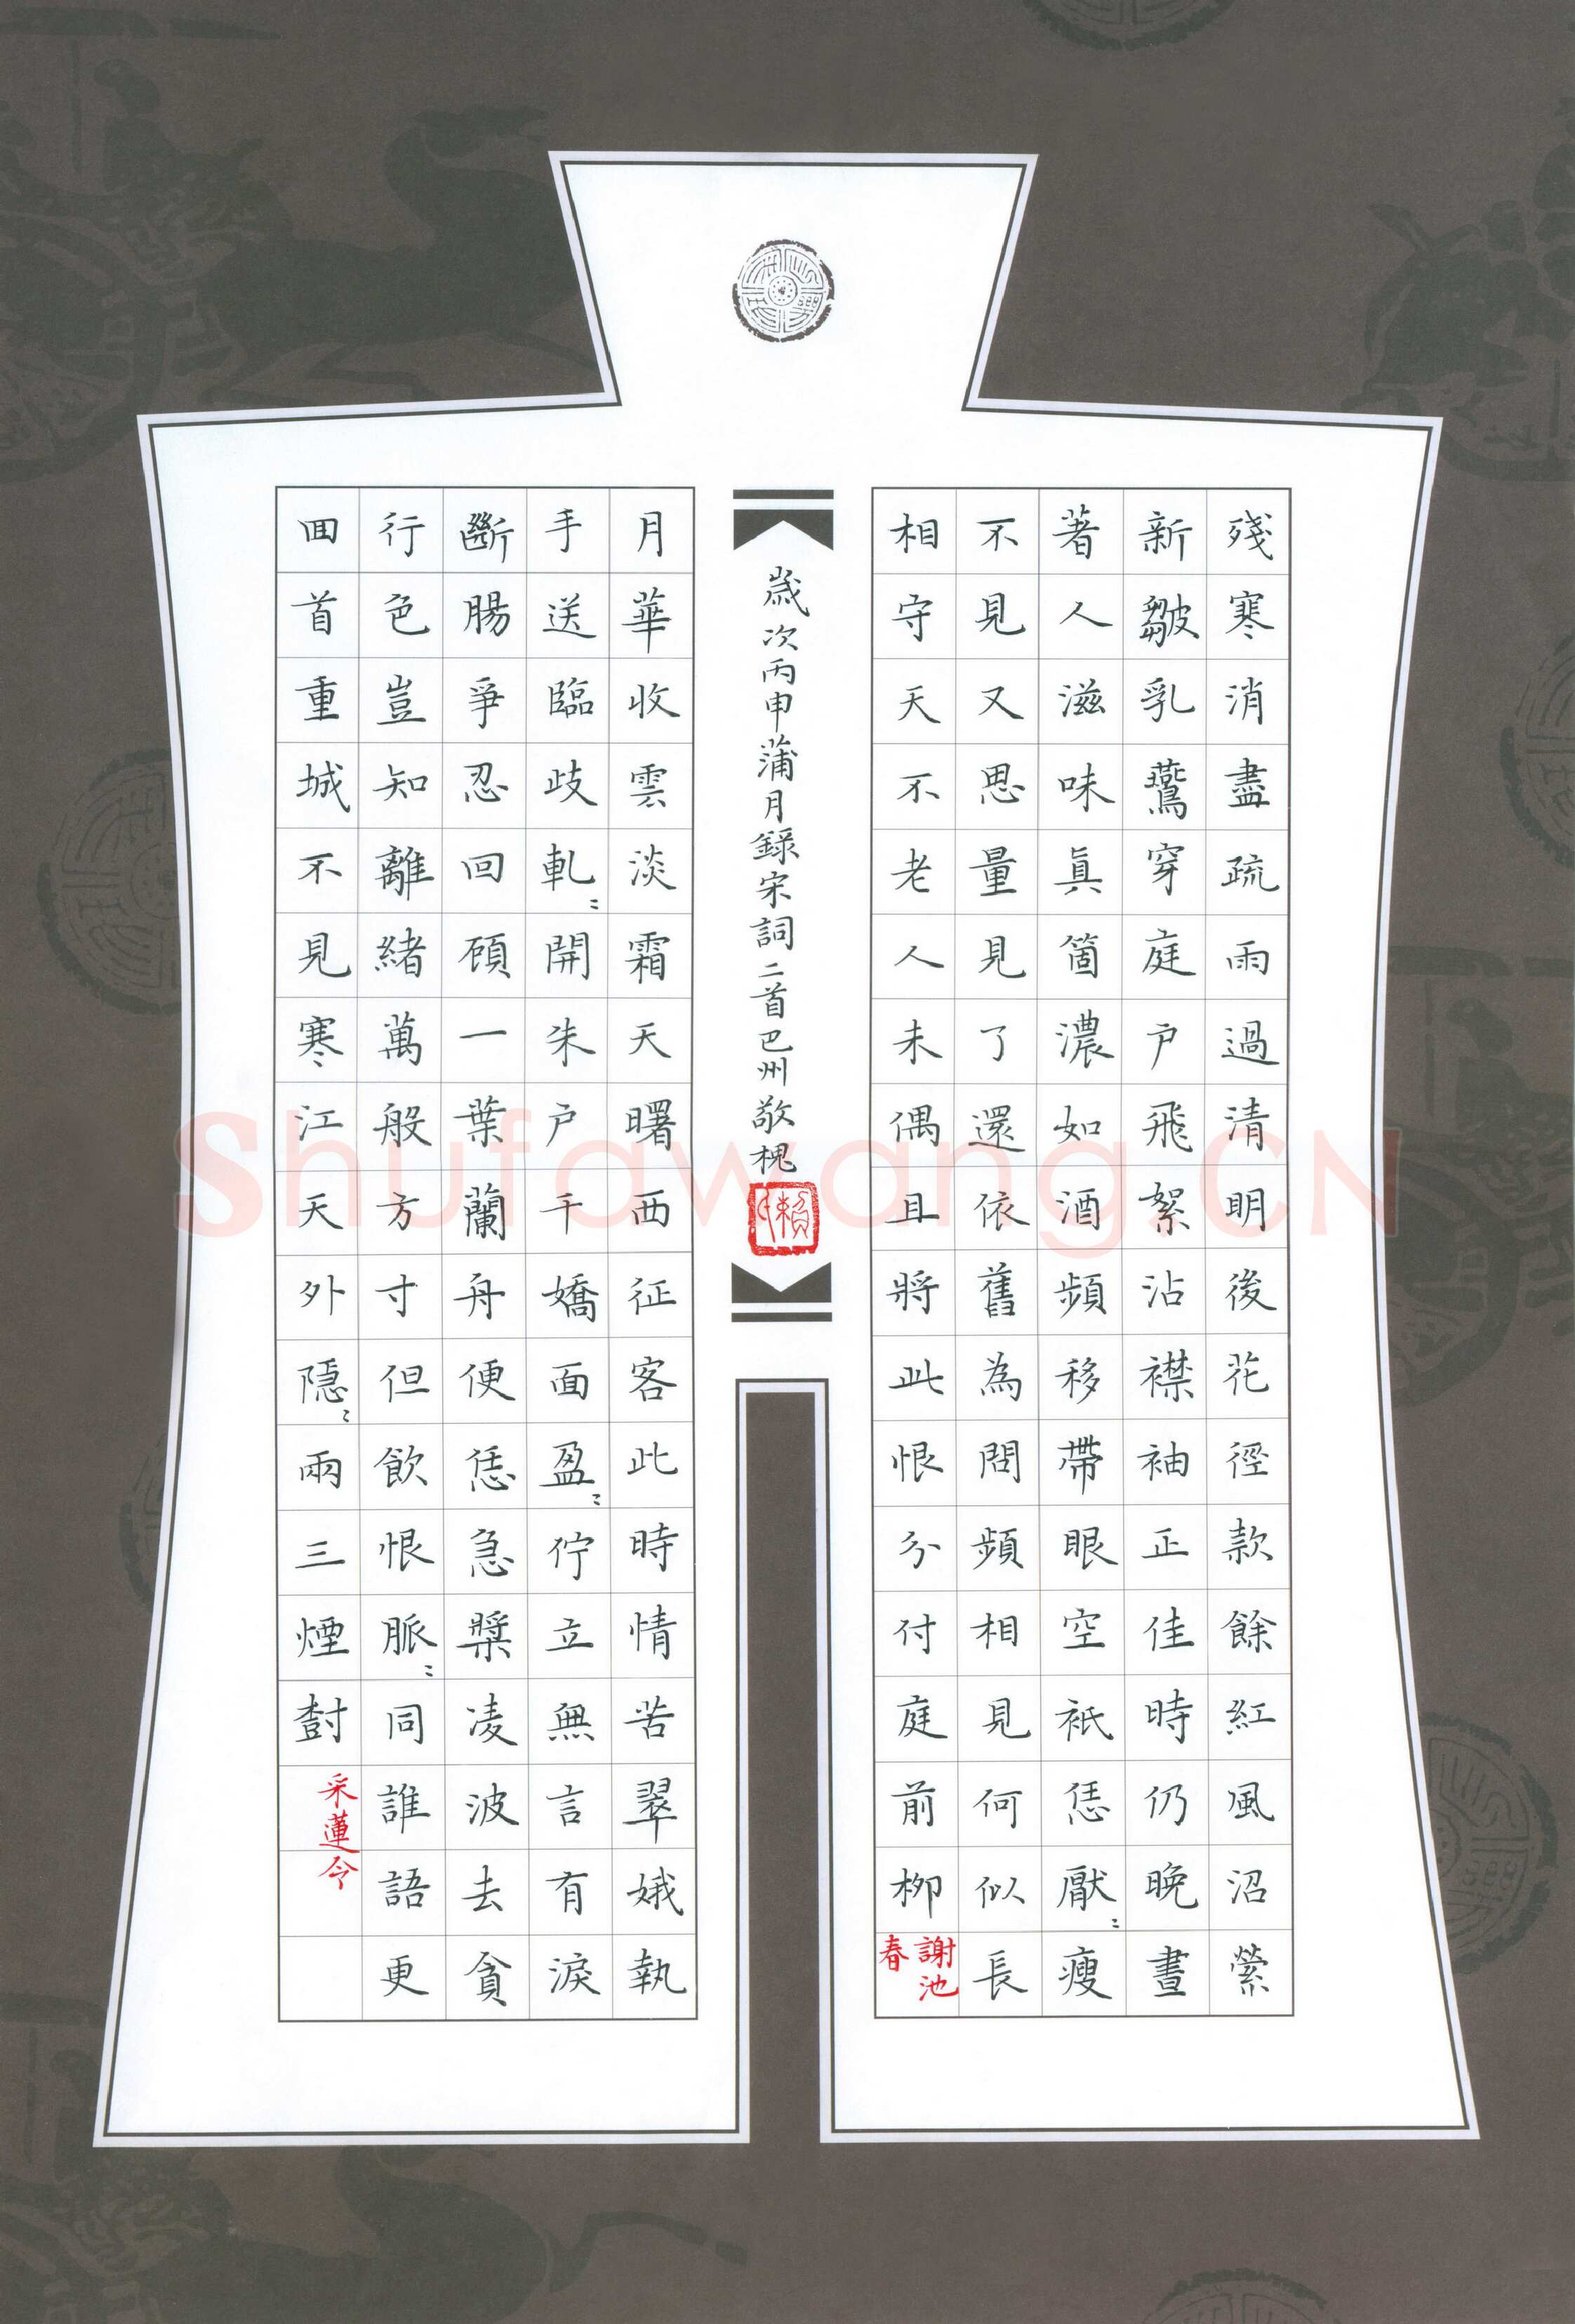 殘寒消盡疏雨過清明後花徑款餘紅風沼縈
新皺乳鷰穿庭户飛絮沾襟袖正佳時仍晚晝
著人滋味眞箇濃如酒頻移帶眼空衹恁厭〻瘦
不見又思量見了還依舊為問頻相見何似長
相守天不老人未偶且將此恨分付庭前柳
謝池
春
歲次丙申蒲月錄宋詞二首巴州敬槐
月華收雲淡霜天曙西征客此時情苦翠娥執
手送臨歧軋〻開朱户千嬌面盈〻佇立無言有淚
斷腸爭忍回顧一葉蘭舟便恁急槳凌波去貪
行色豈知離緒萬般方寸但飲恨脈〻同誰語更
回首重城不見寒江天外隱〻兩三煙樹
采蓮令
Shufawang.CN